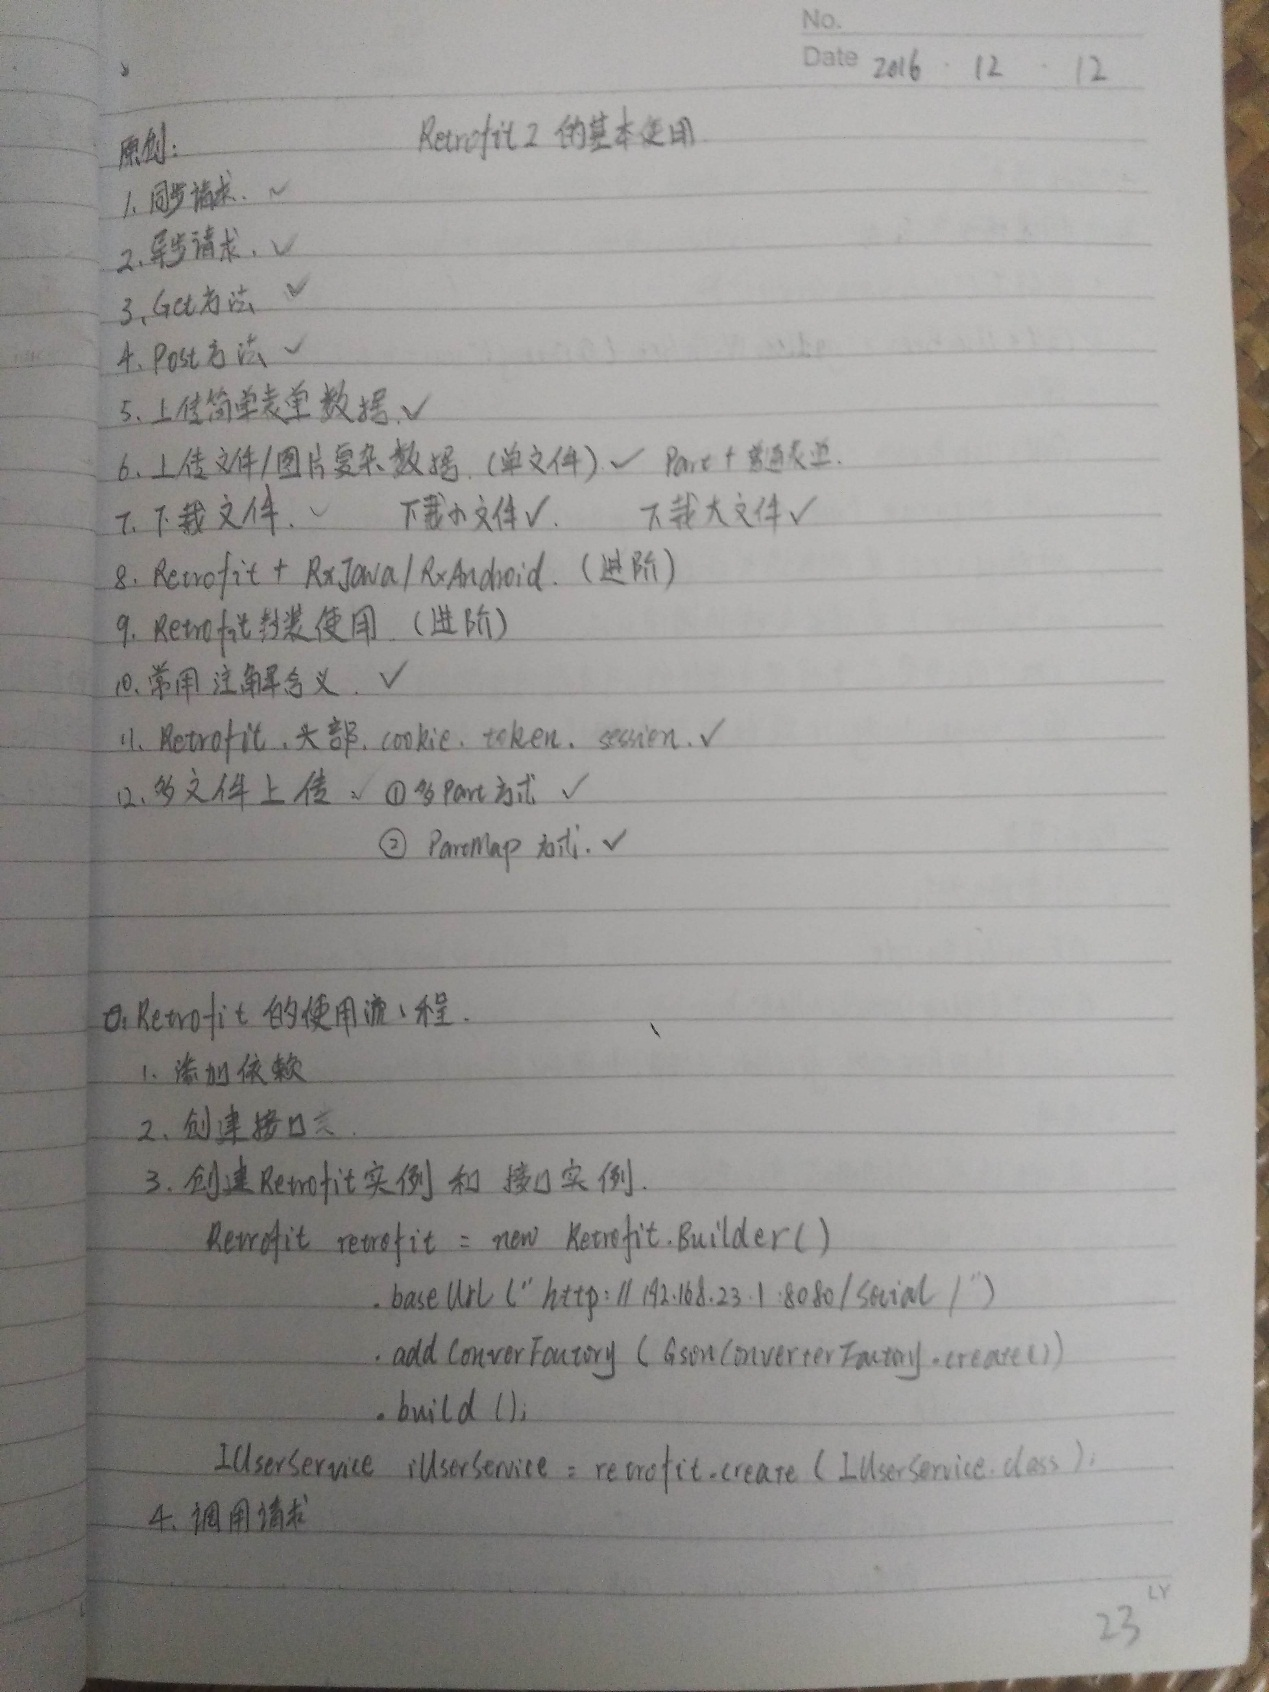 No.
Date 2016 · 12 · 12
原创: Retrofit2 的基本使用
1. 同步请求. ✓
2. 异步请求. ✓
3. Get方法 ✓
4. Post方法 ✓
5. 上传简单表单数据. ✓
6. 上传文件/图片复杂数据. (单文件). ✓ Part + 普通表单.
7. 下载文件. ✓ 下载小文件✓. 下载大文件✓
8. Retrofit + RxJava/RxAndroid. (进阶)
9. Retrofit封装使用. (进阶)
10. 常用注解含义. ✓
11. Retrofit. 头部. cookie. token. session. ✓
12. 多文件上传 ✓ ① 多Part方式 ✓
② PartMap 方式. ✓
Retrofit 的使用流程.
1. 添加依赖
2. 创建接口
3. 创建Retrofit实例 和 接口实例.
Retrofit retrofit = new Retrofit.Builder()
.baseUrl("http://192.168.23.1:8080/Social/")
.addConverFactory(GsonConverterFactory.create())
.build();
IUserService iUserService = retrofit.create(IUserService.class);
4. 调用请求
LY
23